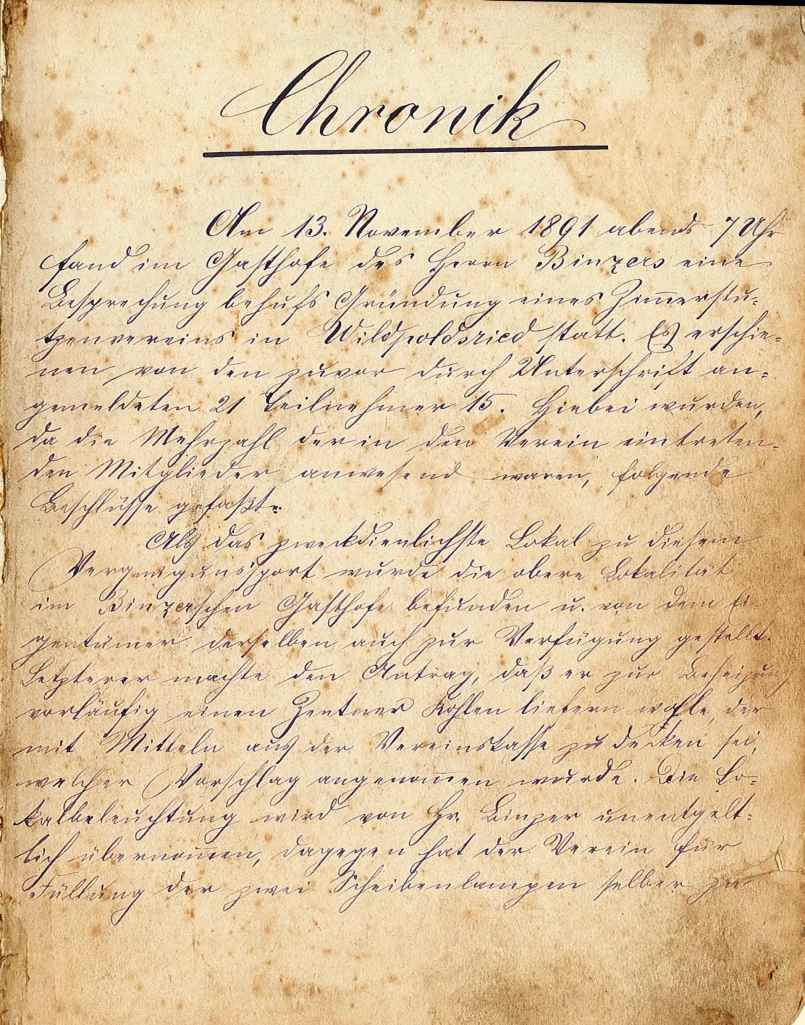 Chronik
Am 13. November 1891 abends 7 Uhr
fand im Gasthofe des Herrn Binzers eine
Besprechung behufs Gründung eines Zim̅erstu-
tzenvereins in Wildpoldsried statt. Es erschie-
nen von den zuvor durch Unterschrift an-
gemeldeten 21 Teilnehmer 15. Hiebei wurden,
da die Mehrzahl der in den Verein eintreten-
den Mitglieder anwesend waren, folgende
Beschlüsse gefaßt:
Als das zweckdienlichste Lokal zu diesem
Vergnügunssport wurde die obere Lokalität
im Binzerschen Gasthofe befunden u. von dem Ei-
gentümer derselben auch zur Verfügung gestellt.
Letzterer machte den Antrag, daß er zur Beheizung
vorläufig einen Zentner Kohlen liefern wolle, der
mit Mitteln aus der Vereinskasse zu decken sei,
welcher Vorschlag angenom̅en wurde. Die Lo-
kalbeleuchtung wird von Hr. Binzer unentgelt-
lich übernom̅en, dagegen hat der Verein für
Füllung der zwei Scheibenlampen selber zu